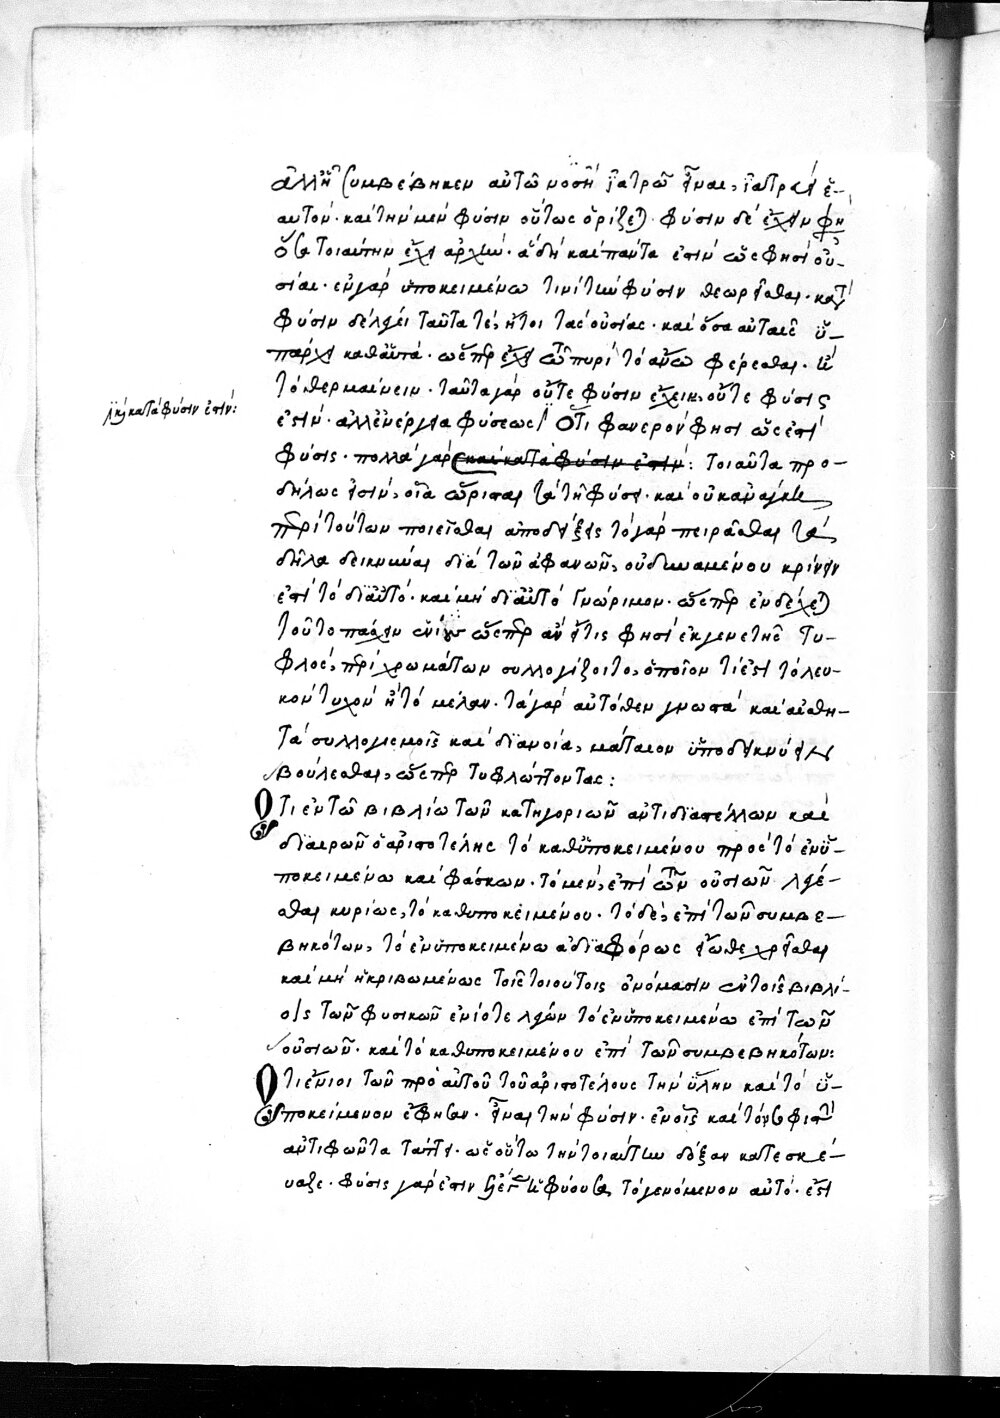 ἀλλ' ἢ συμβέβηκεν αὐτῶ νοσεῖν ἰατρῶ εἶναι, ἰατρεύει ἑ-
αυτόν· καὶ τὴν μὲν φύσιν οὕτως ὁρίζεται· φύσιν δὲ ἔχειν φη
ὅσα τοιαύτην ἔχει ἀρχήν· ἃ δὴ καὶ πάντα ἐστὶν ὥς φησὶ οὐ-
σίαι· ἐν γὰρ ὑποκειμένω τινὶ τὴν φύσιν θεωρεῖσθαι· κατὰ
φύσιν δὲ λέγει ταῦτά τε, ἤτοι τὰς οὐσίας· καὶ ὅσα αὐταῖς ὑ-
πάρχει καθ' αὑτά· ὥσπερ ἔχει τῶ πυρὶ τὸ ἄνω φέρεσθαι· καὶ
τὸ θερμαίνειν· ταῦτα γὰρ οὔτε φύσιν ἔχει, οὔτε φύσις
ἐστίν· ἀλλ' ἐνέργεια φύσεως. Ὅτι φανερόν φησι ὡς ἐστὶ
φύσις· πολλὰ γὰρ καὶ κατὰ φύσιν ἐστίν: τοιαῦτα προ-
καὶ κατὰ φύσιν ἐστίν:
δήλως εἰσίν, οἷα ὥρισται τὰ τῆ φύσει· καὶ οὐκ ἀνάγκη
περὶ τούτων ποιεῖσθαι ἀποδείξεις τὸ γὰρ πειρᾶσθαι τὰ
δῆλα δεικνύναι διὰ τῶν ἀφανῶν, οὐ δυναμένου κρίνειν
ἐστὶ τὸ δι' αὑτό· καὶ μὴ δι' αὑτὸ γνώριμον· ὥσπερ ἐνδέχεται
τοῦτο πάσχειν ὥσπερ ἂν εἴ τις φησὶ ἐκ γενετῆς τυ-
φλὸς, περὶ χρωμάτων συλλογίζοιτο, ὁποῖον τί ἐστι τὸ λευ-
κὸν τυχὸν ἢ τὸ μέλαν· τὰ γὰρ αὐτόθεν γνωστὰ καὶ αἰσθη-
τὰ συλλογισμοῖς καὶ διανοία, μάταιον ὑποδεικνύειν
βούλεσθαι, ὥσπερ τυφλώττοντας:
Ὅτι ἐν τῶ βιβλίω τῶν κατηγοριῶν ἀντιδιαστέλλων καὶ
διαιρῶν ὁ ἀριστοτέλης τὸ καθ' ὑποκειμένου πρὸς τὸ ἐν ὑ-
ποκειμένω καὶ φάσκων· τὸ μὲν, ἐπὶ τῶν οὐσιῶν λέγε-
σθαι κυρίως, τὸ καθ' ὑποκειμένου· τὸ δὲ, ἐπὶ τῶν συμβε-
βηκότων, τὸ ἐν ὑποκειμένω ἀδιαφόρως εἴωθε χρῆσθαι
καὶ μὴ ἠκριβωμένως τοῖς τοιούτοις ὀνόμασιν ἐν τοῖς βιβλί-
οις τῶν φυσικῶν ἐνίοτε λέγων τὸ ἐν ὑποκειμένω ἐπὶ τῶν
οὐσιῶν· καὶ τὸ καθ' ὑποκειμένου ἐπὶ τῶν συμβεβηκότων:
Ὅτι ἔνιοι τῶν πρὸ αὐτοῦ τοῦ ἀριστοτέλους τὴν ὕλην καὶ τὸ ὑ-
ποκείμενον ἔφησαν· εἶναι τὴν φύσιν· ἐν οἷς καὶ τὸν σοφιστὴν
ἀντιφῶντα τάττει· ὡς οὕτω τὴν τοιαύτην δόξαν κατεσκέ-
υαζε· φύσις γάρ ἐστιν ἡ φύουσα τὸ γενόμενον αὐτό· ἐστι